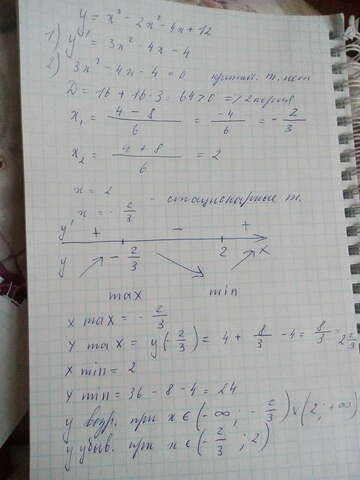 y = x³ - 2x² - 4x + 12
1) y' = 3x² - 4x - 4
2) 3x² - 4x - 4 = 0 критич. т. нет
D = 16 + 16·3 = 64 > 0 => 2 корня
x₁ = (4 - 8)/6 = -4/6 = -2/3
x₂ = (4 + 8)/6 = 2
x = 2
x = -2/3 - стационарные т.
y' + - +
-2/3 2 x
y
max min
x max = -2/3
y max = y(-2/3) = 4 + 8/3 - 4 = 8/3 = 2 2/3
x min = 2
y min = 36 - 8 - 4 = 24
y возр. при x ∈ (-∞; -2/3) ∪ (2; +∞)
y убыв. при x ∈ (-2/3; 2)